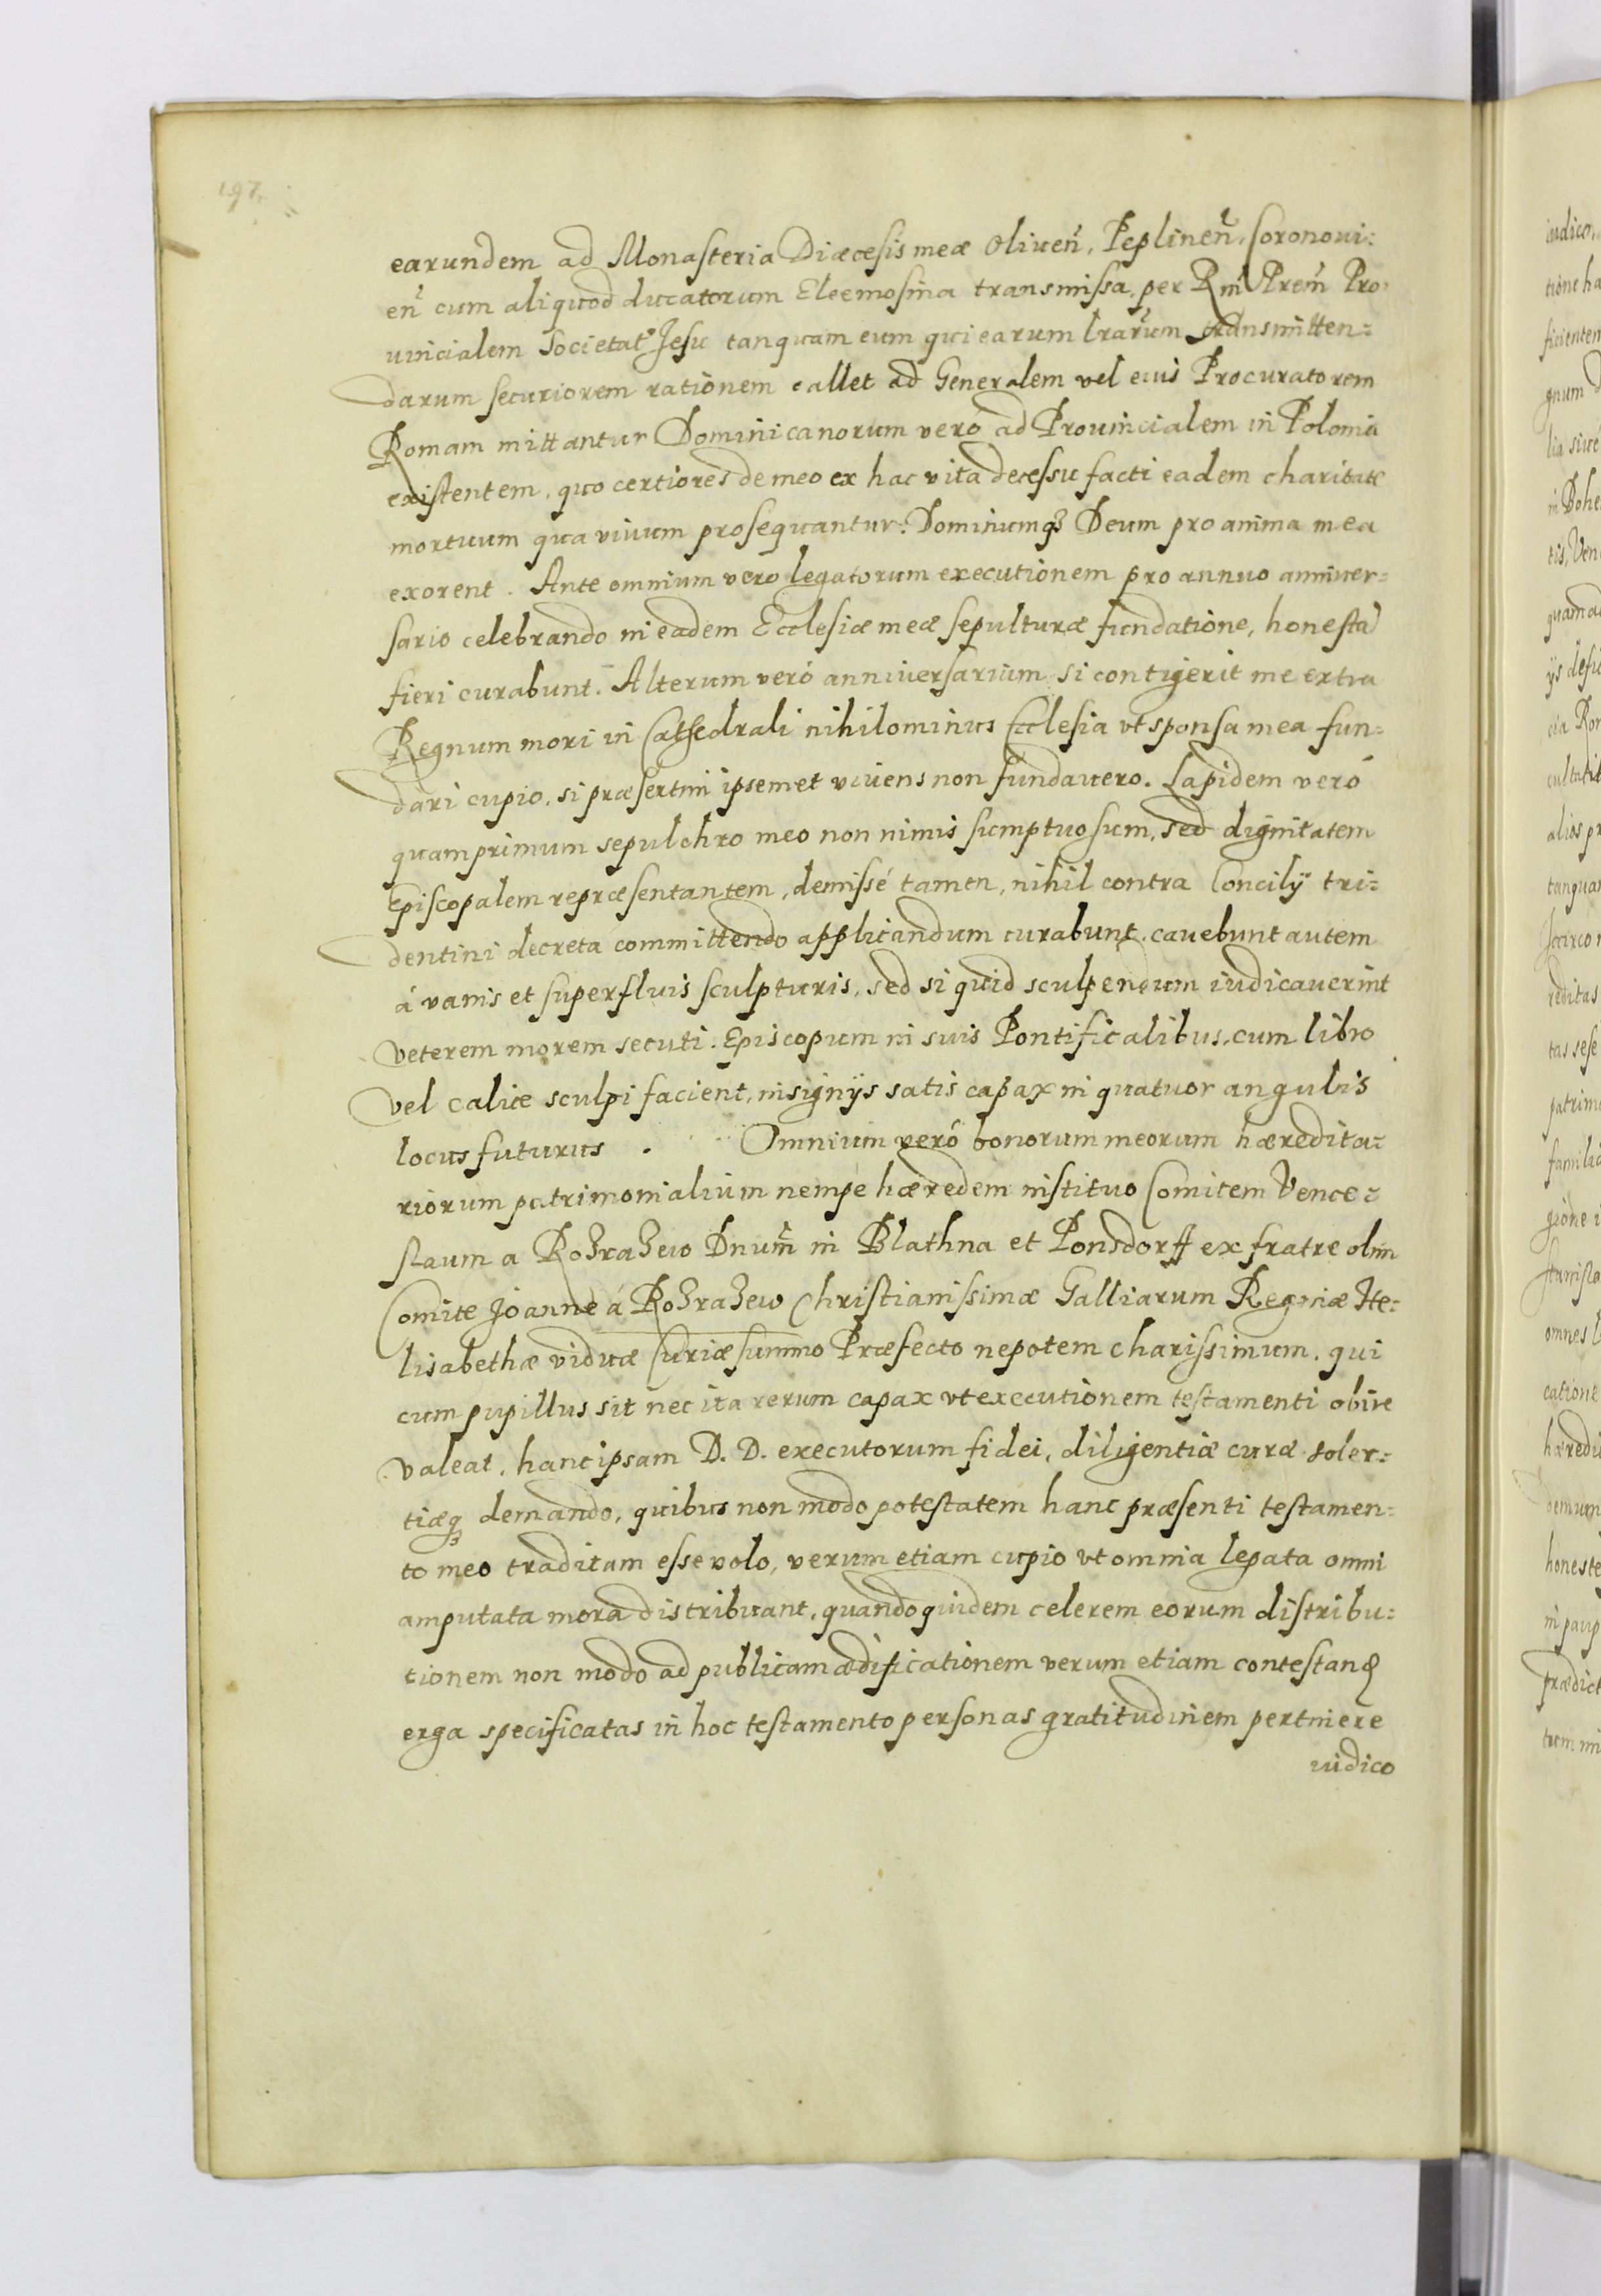 197
earundem ad Monasteria Diæcesis meæ Oliueñ, Peplineñ, Coronoui=
eñ cum aliquod ducatorum Eleemosina transmissa, per Rm̃ Prem̃ Pro=
uincialem Societat Jesu tanquam eum qui earum lrarum transmitten=
darum securiorem rationem callet ad Generalem vel eius Procuratorem
Romam mittantur Dominicanorum vero ad Prouincialem in Polonia
existentem, quo certiores de meo ex hac vita decessu facti eadem charitate
mortuum qua vivum prosequantur: Dominumq₃ Deum pro anima mea
exorent. Ante omnium vero legatorum executionem pro annuo anniver=
sario celebrando in eadem Ecclesiæ meæ sepulturæ fundatione, honesta
fieri curabunt. Alterum veró anniversarium, si contigerit me extra
Regnum mori in Cathedrali nihilominus Ecclesia vt sponsa mea fun=
dari cupio, si præsertim ipsemet vivens non fundavero. Lapidem veró
quamprimum sepulchro meo non nimis sumptuosum, sed dignitatem
Episcopalem repræsentantem, demissé tamen, nihil contra Concilÿ tri=
dentini decreta committendo applicandum curabunt, cavebunt autem
á vanis et superfluis sculpturis, sed si quid sculpendum iudicaverint
veterem morem secuti: Episcopum in suis Pontificalibus, cum libro
vel calice sculpi facient, insignÿs satis capax in quatuor angulis
locus futurus. Omnium veró bonorum meorum hæredita=
riorum patrimonialium nempé hæredem instituo Comitem Vence=
slaum a Rozrazew Dnum̃ in Blathna et Ponsdorff ex fratre olim
Comite Joanne á Rozrazew Christianissimæ Galliarum Reginæ He=
lisabethæ viduæ Curiæ summo Præfecto nepotem charissimum, qui
cum pupillus sit nec ita rerum capax vt executionem testamenti obire
valeat, hanc ipsam D. D. executorum fidei, diligentiæ curæ soler=
tiæq₃ demando, quibus non modo potestatem hanc præsenti testamen=
to meo traditam esse volo, verum etiam cupio vt omnia legata omni
amputata mora distribuant, quandoquidem celerem eorum distribu=
tionem non modo ad publicam ædificationem verum etiam contestanꝗ
erga specificatas in hoc testamento personas gratitudinem pertinere
iudico